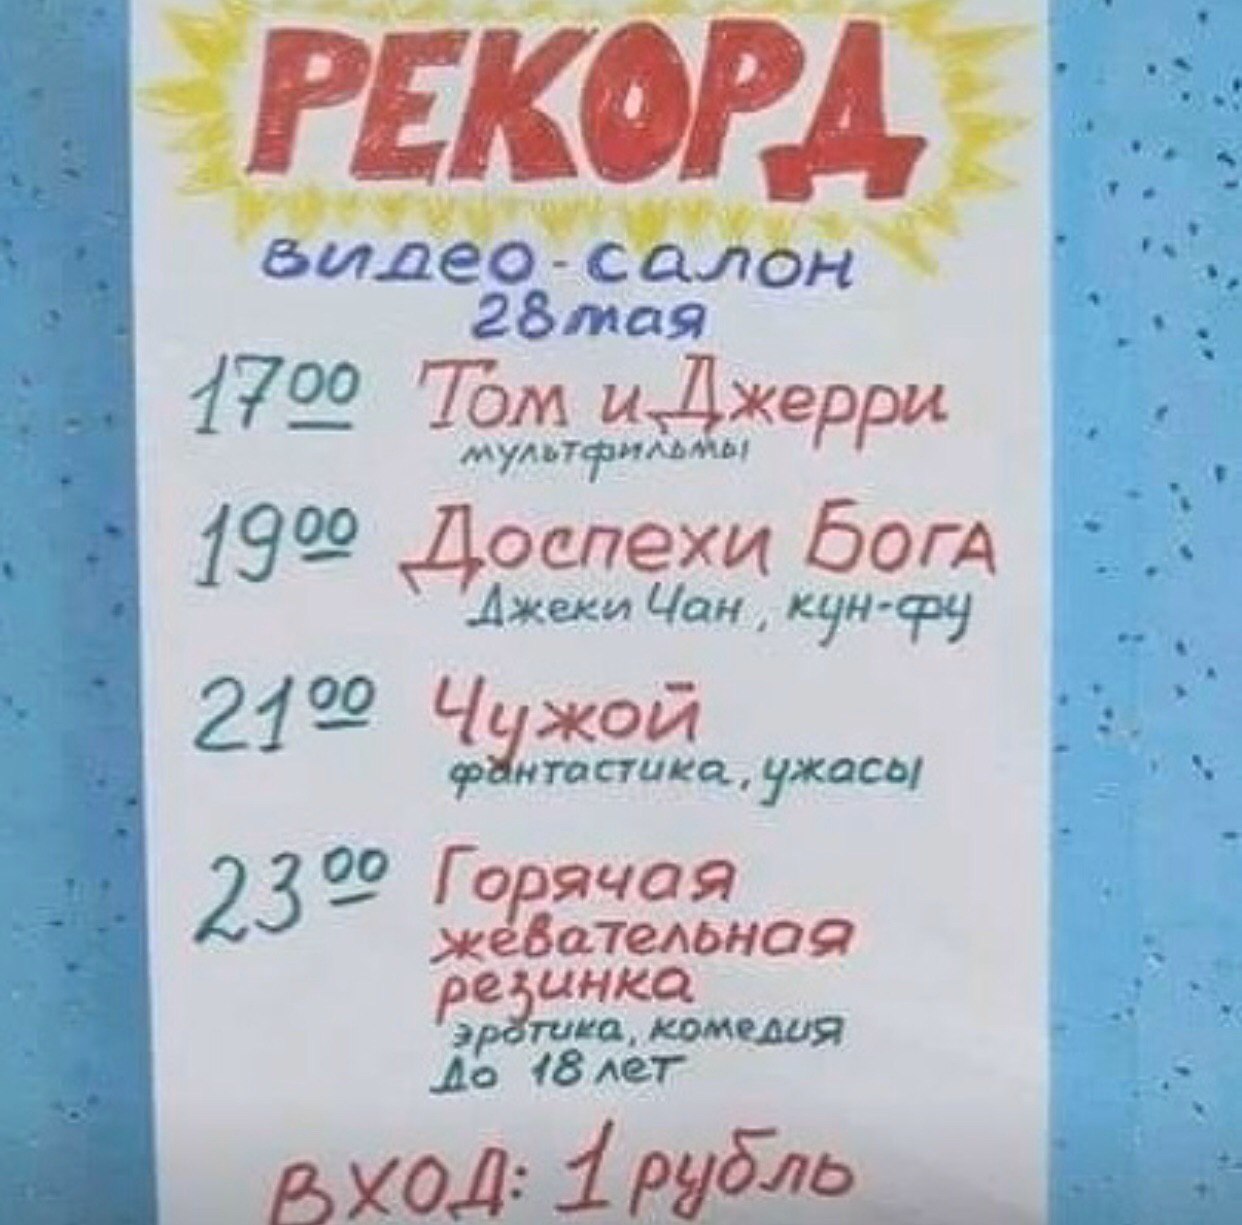 РЕКОРД
видео-салон
28 мая
17 00 Том и Джерри
мультфильмы
19 00 Доспехи Бога
Джеки Чан, кун-фу
21 00 Чужой
фантастика, ужасы
23 00 Горячая
жевательная
резинка
эротика, комедия
До 18 лет
ВХОД: 1 рубль